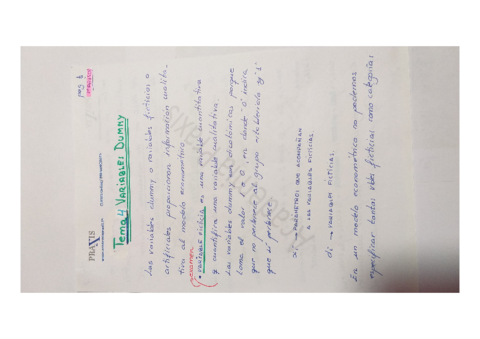 PRAXIS
pag 1
Tema 4 VARIABLES DUMMY
Las variables dummy o variables ficticias o
artificiales proporcionan información cualita-
tiva al modelo econométrico.
examen
• VARIABLE FICTICIA es una variable cuantitativa
q cuantifica una variable cualitativa
Las variables dummy son dicotómicas porque
toma el valor 1 o 0, en donde 'o' indica
que no pertenece al grupo establecido y '1'
que si pertenece
→ PARÁMETROS QUE ACOMPAÑAN
A LAS VARIABLES FICTICIAS
di → VARIABLE FICTICIAS.
En un modelo econométrico no podemos
especificar tantas vbles ficticias como categorías